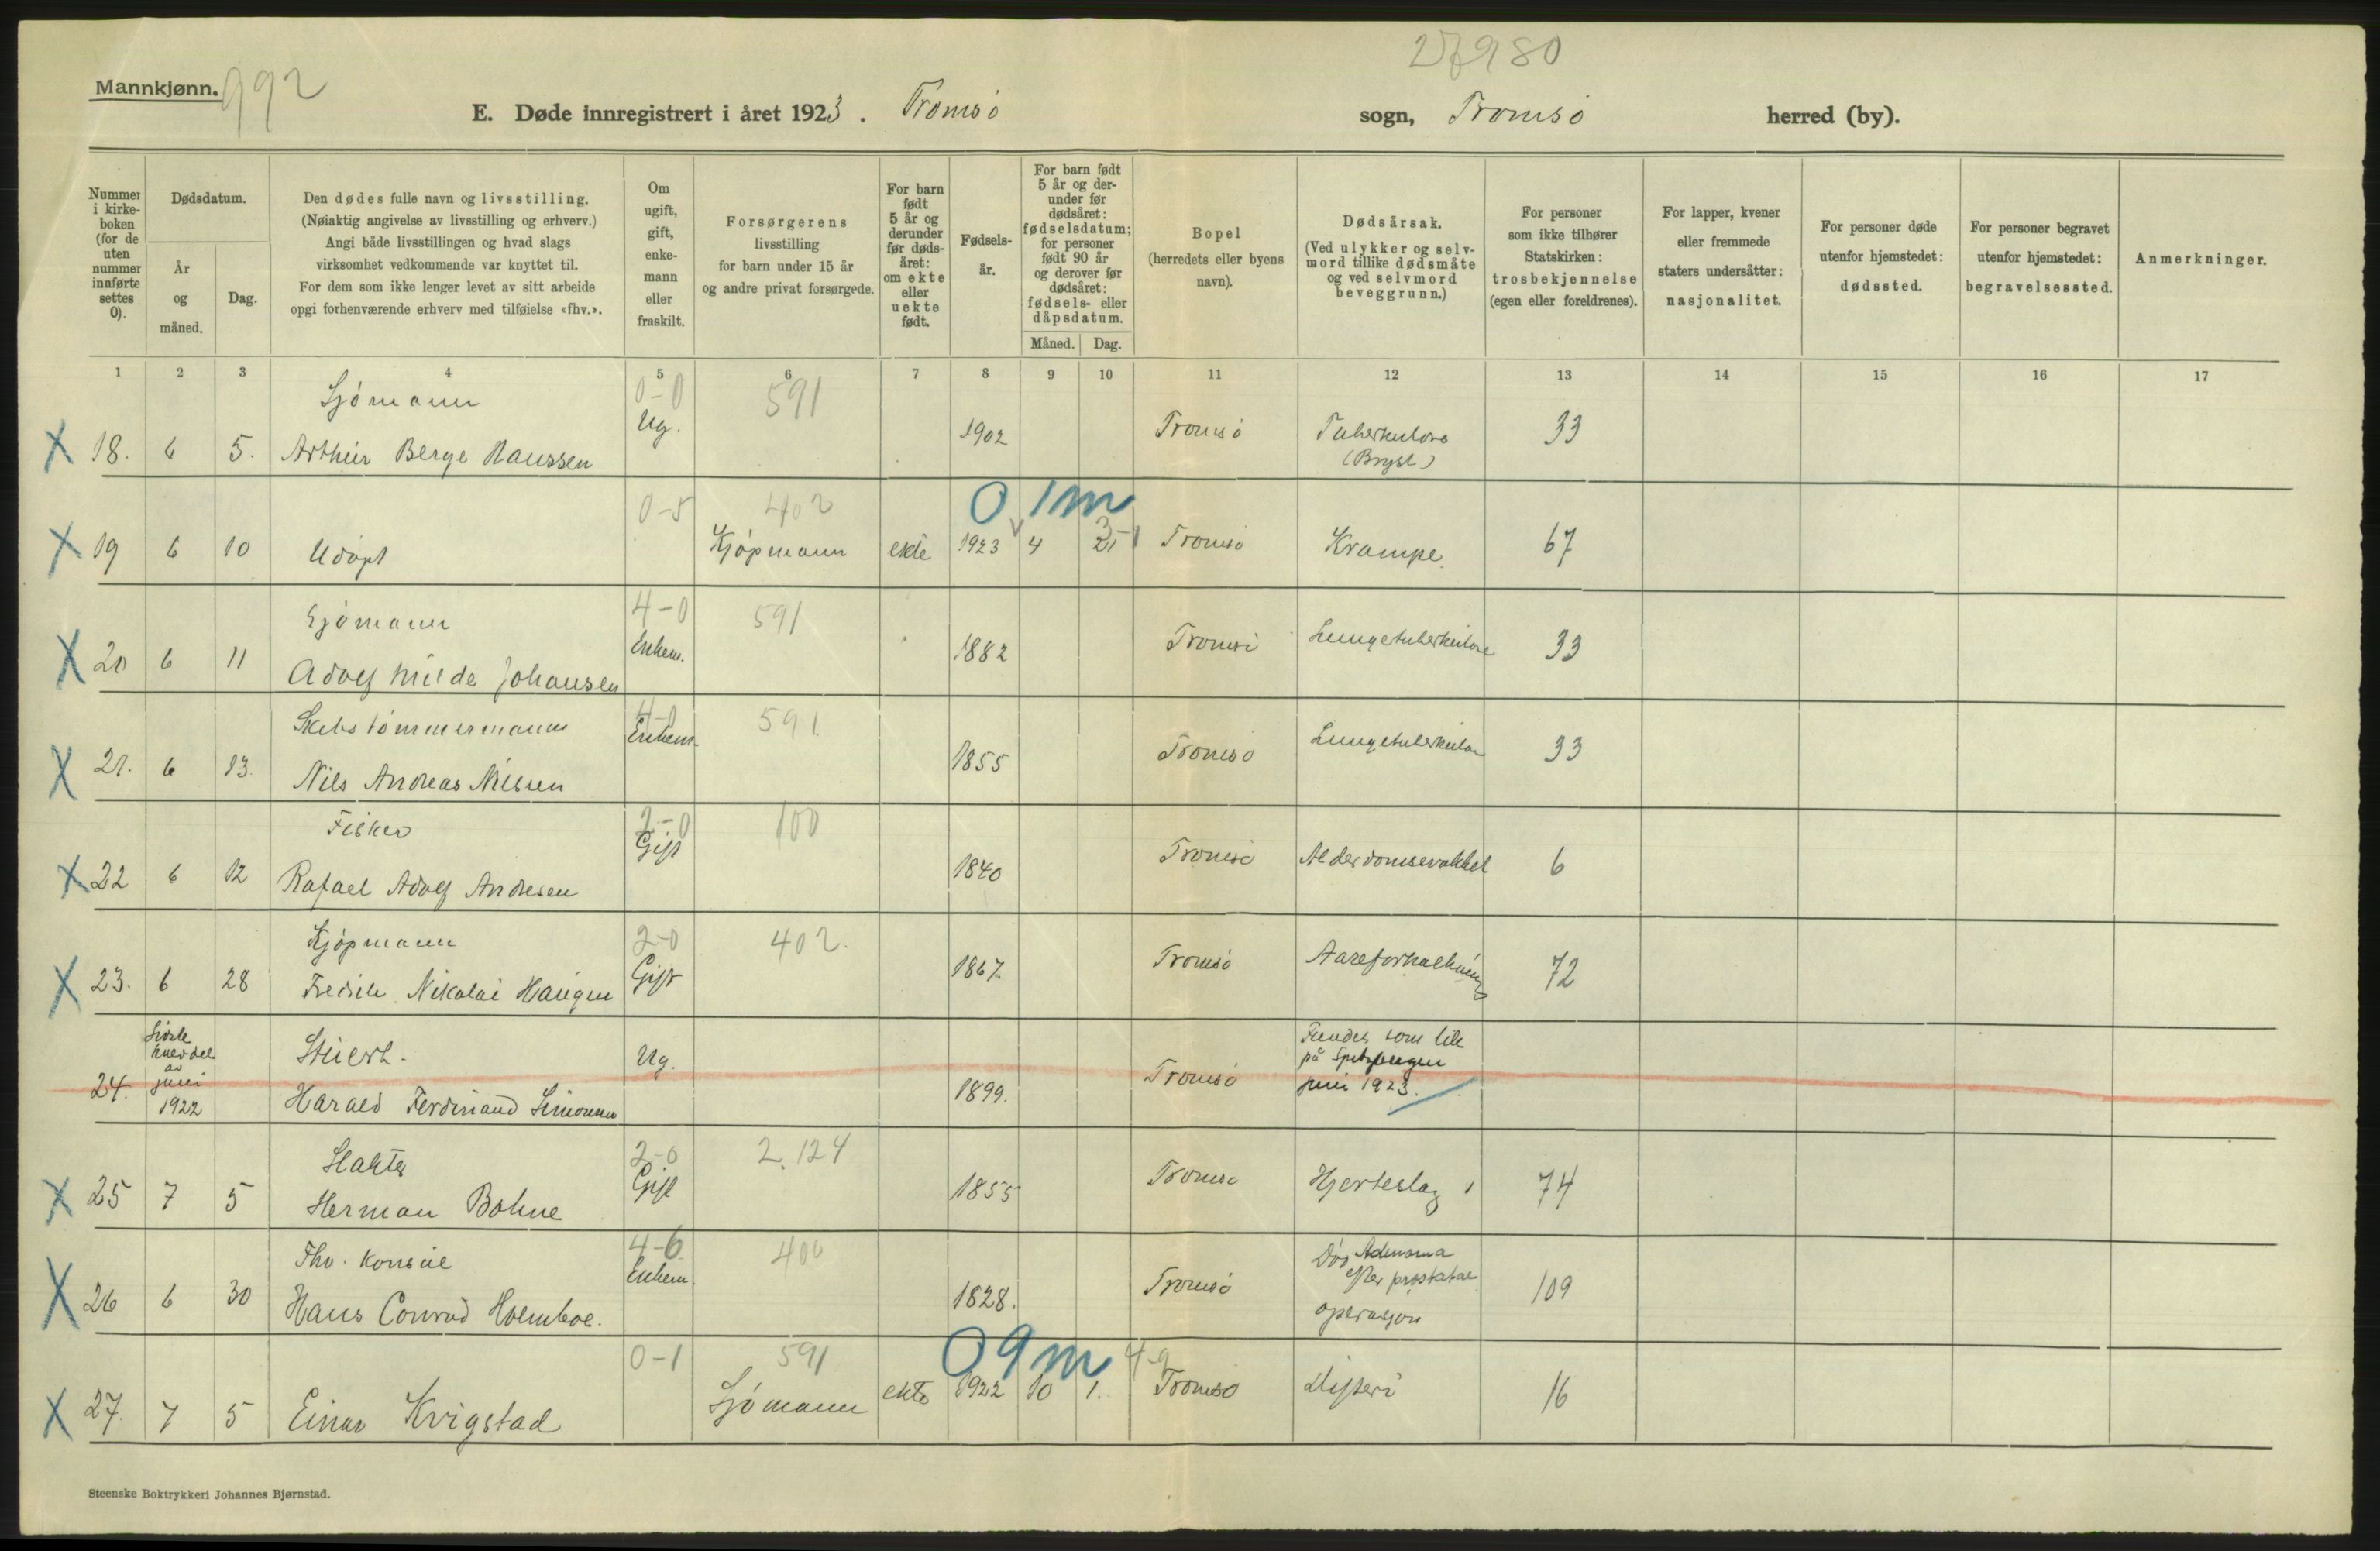 27980
Mannkjønn. 992
E. Døde innregistrert i året 1923. Tromsö sogn, Tromsö herred (by).
Nummer i kirkeboken (for de uten nummer innførte settes 0).
Dødsdatum.
År og måned.
Dag.
Den dødes fulle navn og livsstilling.
(Nøiaktig angivelse av livsstilling og erhverv.)
Angi både livsstillingen og hvad slags
virksomhet vedkommende var knyttet til.
For dem som ikke lenger levet av sitt arbeide
opgi forhenværende erhverv med tilføielse «fhv.».
Om ugift, gift, enkemann eller fraskilt.
Forsørgerens
livsstilling
for barn under 15 år
og andre privat forsørgede.
For barn født 5 år og derunder før dødsåret: om ekte eller uekte født.
Fødselsår.
For barn født 5 år og derunder før dødsåret: fødselsdatum; for personer født 90 år og derover før dødsåret: fødsels- eller dåpsdatum.
Måned. Dag.
Bopel
(herredets eller byens
navn).
Dødsårsak.
(Ved ulykker og selvmord tillike dødsmåte og ved selvmord beveggrunn.)
For personer
som ikke tilhører
Statskirken:
trosbekjennelse
(egen eller foreldrenes).
For lapper, kvener
eller fremmede
staters undersåtter:
nasjonalitet.
For personer døde
utenfor hjemstedet:
dødssted.
For personer begravet
utenfor hjemstedet:
begravelsessted.
Anmerkninger.
1 2 3 4 5 6 7 8 9 10 11 12 13 14 15 16 17
Sjömann 0-0 591
X 18. 6 5. Arthur Berge Hanssen Ug. 1902 Tromsö Tuberkulose 33
(Bryst)
0-5 402 0 1m
X 19 6 10 Udöpt Kjöpmann ekte 1923 4 Tromsö Krampe 67
Sjömann 4-0 591
X 20 6 11 Adolf Milde Johansen Enkem. 1882 Tromsö Lungetuberkulose 33
Skibstömmermann 4-0 591
X 21. 6 13. Nils Andreas Nilssen Enkem. 1855 Tromsö Lungetuberkulose 33
Fisker 2-0 100
X 22 6 12 Rafael Adolf Andresen Gift 1840 Tromsö Alderdomsvakkel 6
Kjöpmann 2-0 402.
X 23. 6 28 Fredrik Nikolai Haugen Gift 1867. Tromsö Aareforkalkning 72
Sidste halvdel av juni 1922
Stuert.
24. Harald Ferdinand Simonsen Ug. 1899. Tromsö Fundet som lik
på Spitsbergen
juni 1923.
Slakter 2-0 2.124
X 25 7 5 Herman Bohne Gift 1855 Tromsö Hjerteslag 74
Fhv. konsul 4-6 400
X 26 6 30 Hans Conrad Holmboe. Enkem 1828. Tromsö Död efter operasjon Adenoma prostatae 109
0-1 591 09m 4-9
X 27. 7 5 Einar Kvigstad Sjömann ekte 1922 10 1. Tromsö Difteri 16
Steenske Boktrykkeri Johannes Bjørnstad.